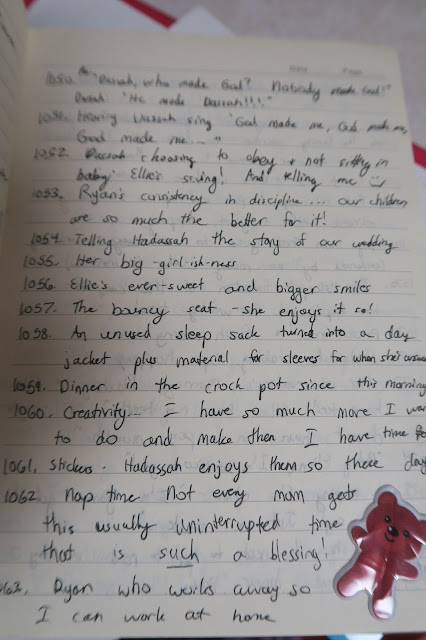 Date Page
1050. "Dassah, who made God? Nobody made God!"
Dassah: "He made Dassah!!!"
1051. Hearing Dassah sing "God made me, God made me,
God made me..."
1052. Dassah choosing to obey & not sitting in
baby Ellie's swing! And telling me
1053. Ryan's consistency in discipline... our children
are so much the better for it!
1054. Telling Hadassah the story of our wedding
1055. Her big-girl-ish-ness
1056. Ellie's ever-sweet and bigger smiles
1057. The bouncy seat - she enjoys it so!
1058. An unused sleep sack turned into a day
jacket plus material for sleeves for when she's
1059. Dinner in the crock pot since this morning
1060. Creativity - I have so much more I
to do and make then I have time
1061. Stickers. Hadassah enjoys them so these
1062. Nap time. Not every mom gets
this usually uninterrupted time
that is such a blessing!
63. Ryan who works away so
I can work at home